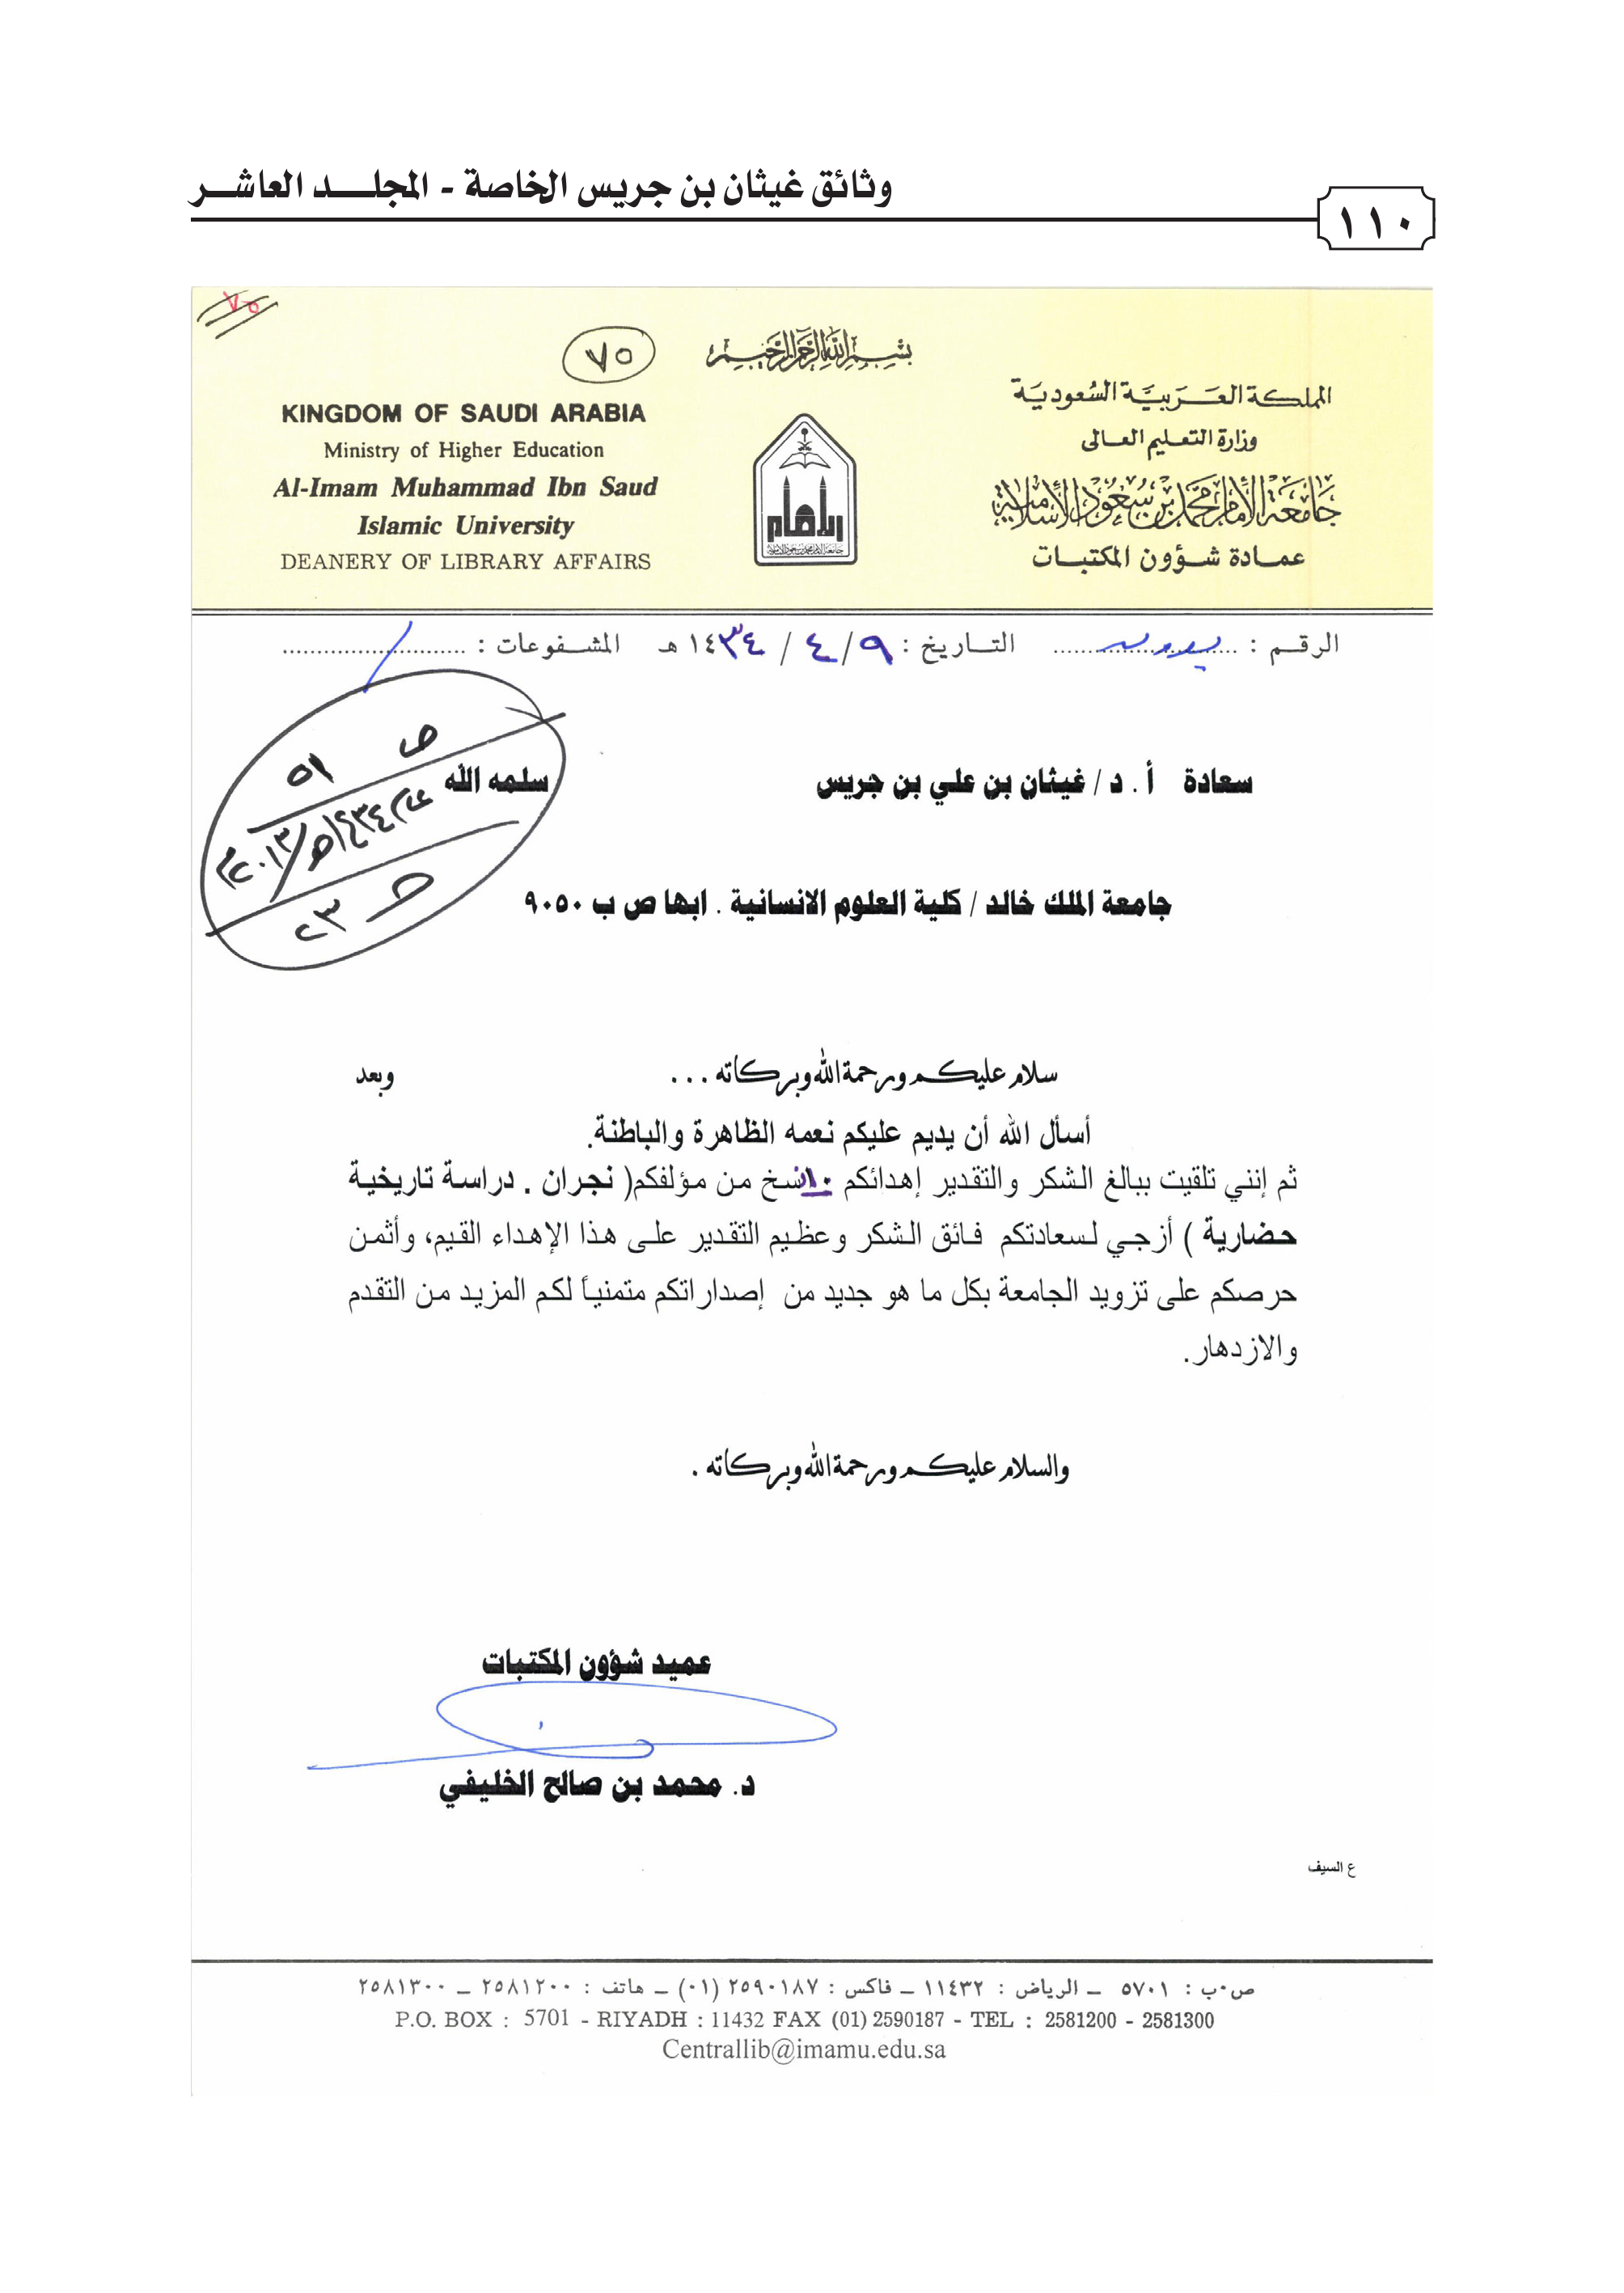 وثائق غيثان بن جريس الخاصة - المجلـــد العاشـــر
١١٠
٧٥
٧٥
بسم الله الرحمن الرحيم
المملكة العربية السعودية
وزارة التعليم العالى
جامعة الإمام محمد بن سعود الإسلامية
عمادة شؤون المكتبات
KINGDOM OF SAUDI ARABIA
Ministry of Higher Education
Al-Imam Muhammad Ibn Saud
Islamic University
DEANERY OF LIBRARY AFFAIRS
الإمام
جامعة الإمام محمد بن سعود الإسلامية
الرقم : بدون التاريخ : ٩ / ٤ / ١٤٣٤ هـ المشفوعات : /
ص ٥١
سعادة أ . د / غيثان بن علي بن جريس سلمه الله
١٤٣٤هـ/٢٠١٣م
جامعة الملك خالد / كلية العلوم الانسانية . ابها ص ب ٩٠٥٠
ح ٢٣
سلام عليكم ورحمة الله وبركاته . . . وبعد
أسأل الله أن يديم عليكم نعمه الظاهرة والباطنة.
ثم إنني تلقيت ببالغ الشكر والتقدير إهدائكم ١٠ نسخ من مؤلفكم( نجران . دراسة تاريخية
حضارية ) أزجي لسعادتكم فائق الشكر وعظيم التقدير على هذا الإهداء القيم، وأثمن
حرصكم على تزويد الجامعة بكل ما هو جديد من إصداراتكم متمنياً لكم المزيد من التقدم
والازدهار.
والسلام عليكم ورحمة الله وبركاته .
عميد شؤون المكتبات
د. محمد بن صالح الخليفي
ع السيف
ص٠ب : ٥٧٠١ – الرياض : ١١٤٣٢ – فاكس : ٢٥٩٠١٨٧ (٠١) – هاتف : ٢٥٨١٢٠٠ – ٢٥٨١٣٠٠
P.O. BOX : 5701 - RIYADH : 11432 FAX (01) 2590187 - TEL : 2581200 - 2581300
Centrallib@imamu.edu.sa